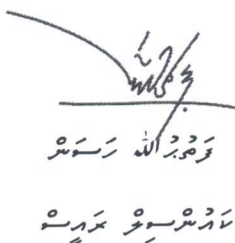 ފަތުޙުﷲ ހަސަން
ކައުންސިލް ރައީސް